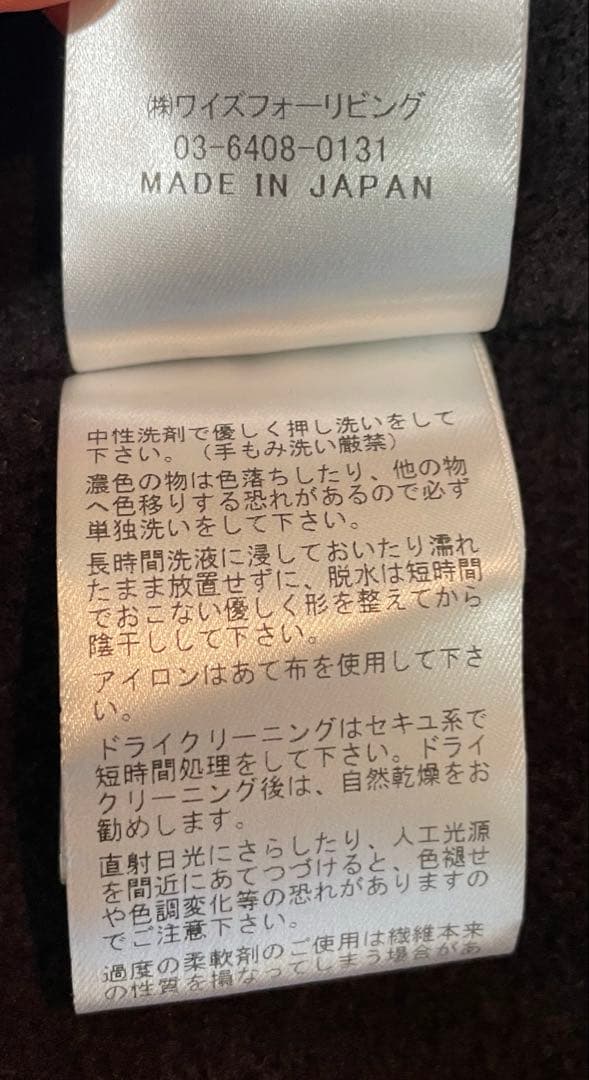 ㈱ワイズフォーリビング
03-6408-0131
MADE IN JAPAN
中性洗剤で優しく押し洗いをして
下さい。（手もみ洗い厳禁）
濃色の物は色落ちしたり、他の物
へ色移りする恐れがあるので必ず
単独洗いをして下さい。
長時間洗液に浸しておいたり濡れ
たまま放置せずに、脱水は短時間
でおこない優しく形を整えてから
陰干しして下さい。
アイロンはあて布を使用して下さ
い。
ドライクリーニングはセキユ系で
短時間処理をして下さい。ドライ
クリーニング後は、自然乾燥をお
勧めします。
直射日光にさらしたり、人工光源
を間近にあてつづけると、色褪せ
や色調変化等の恐れがありますの
でご注意下さい。
過度の柔軟剤のご使用は繊維本来
の性質を損なってしまう場合があ